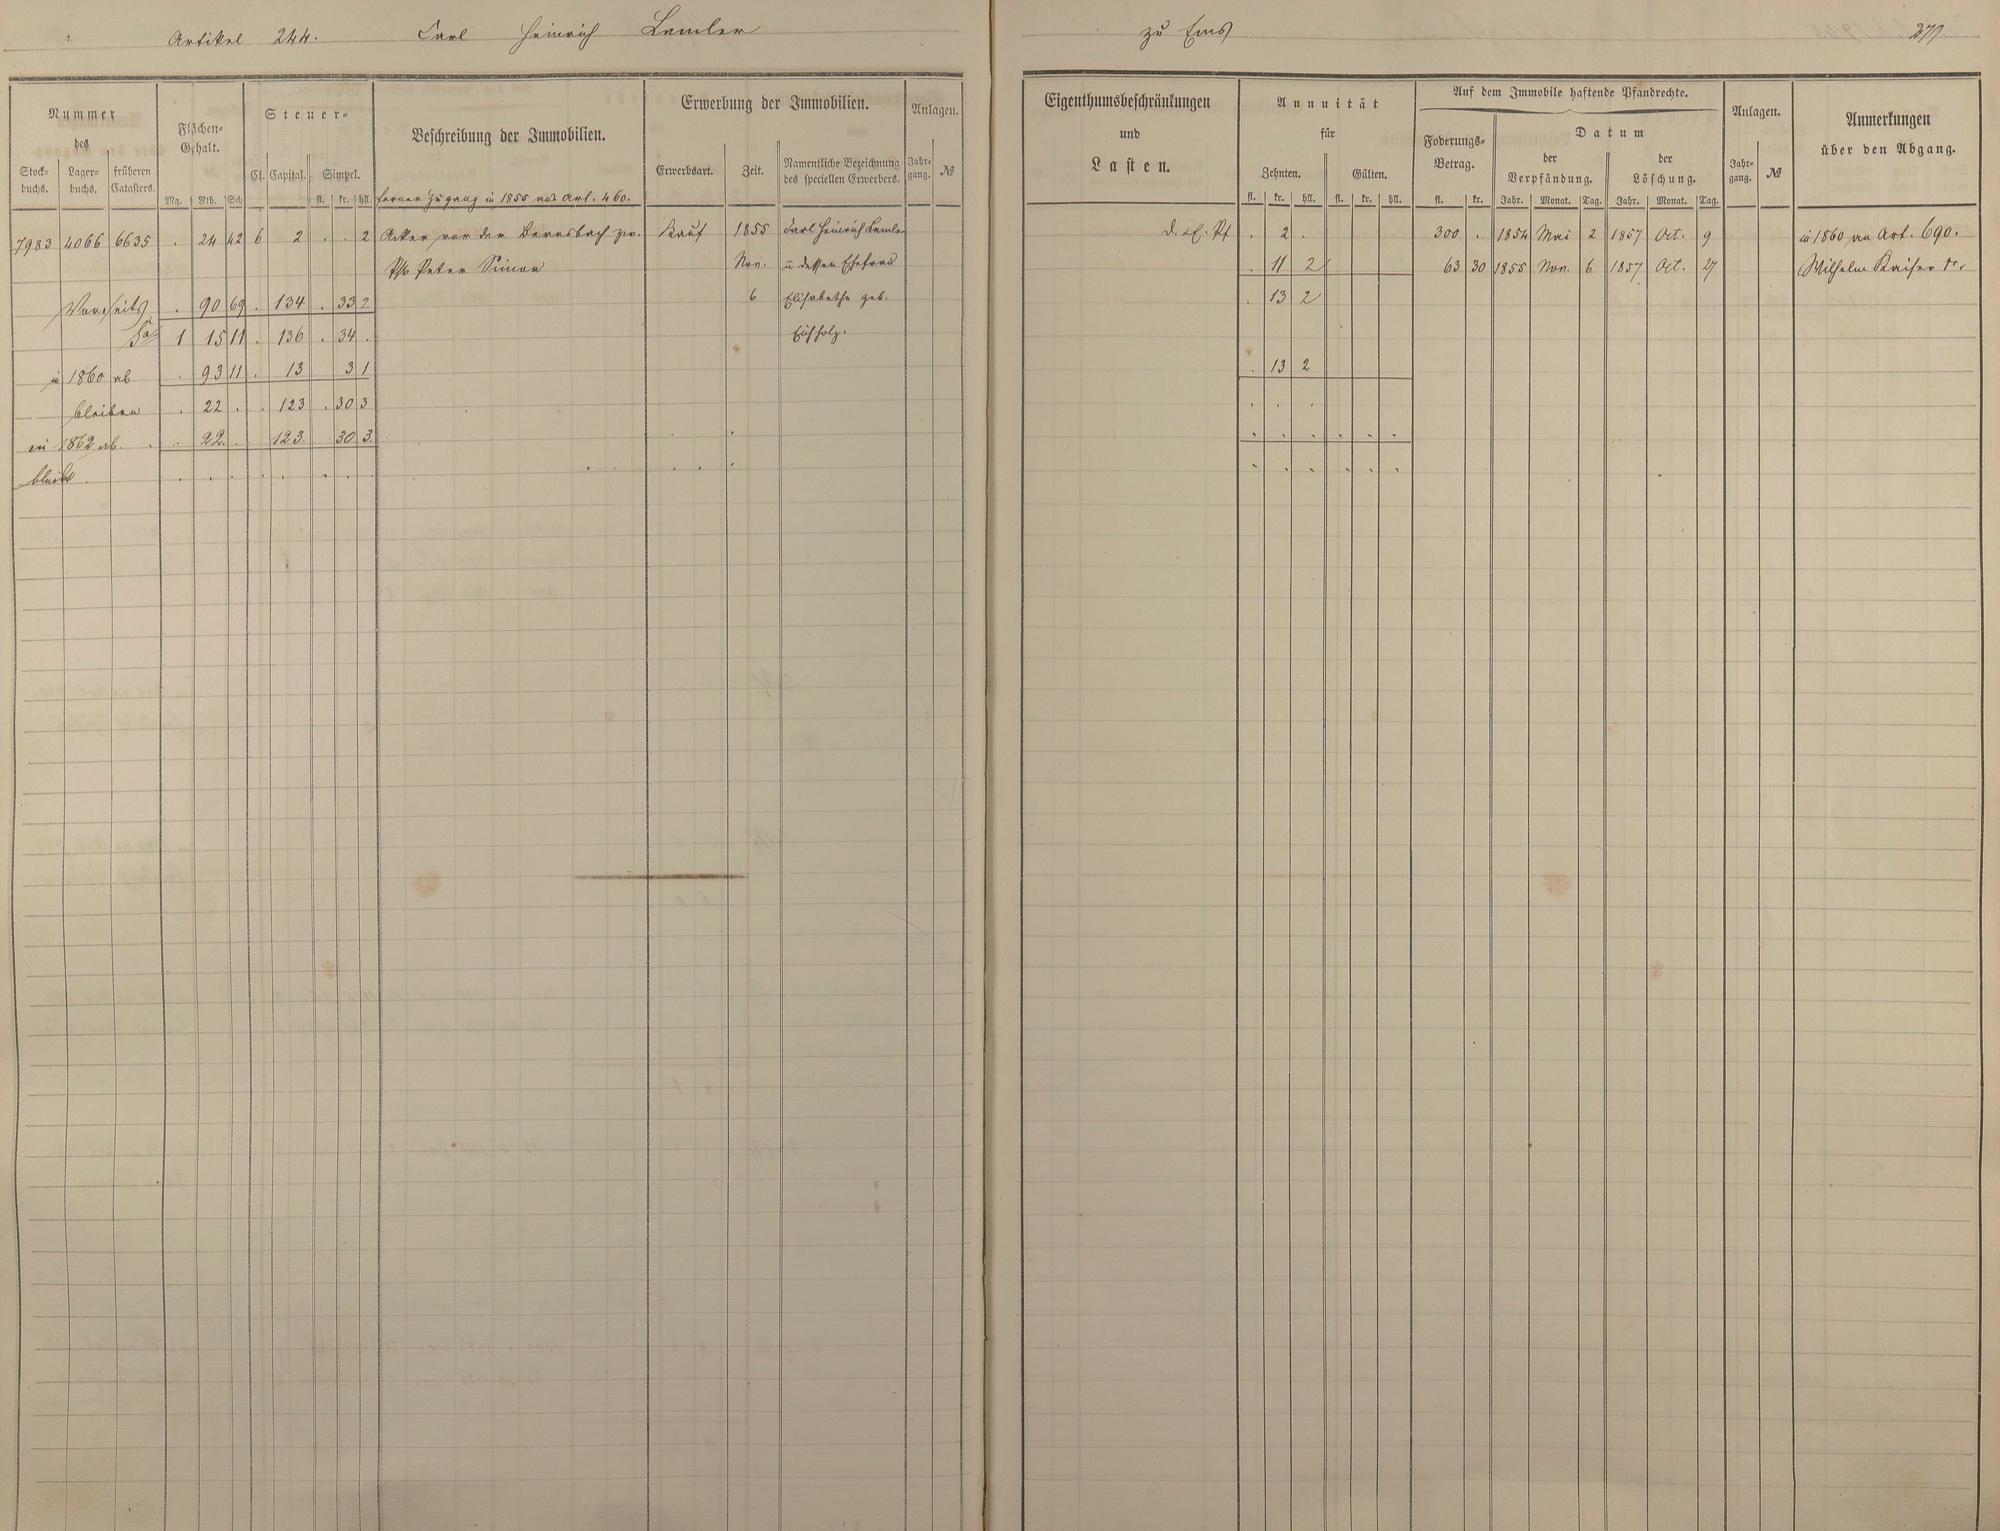 Artikel 244. Carl Heinrich Lemler zu Ems
Nummer
des
Stock-
buchs.
Lager-
buchs.
früheren
Catasters.
Flächen-
Gehalt.
Mg. Rth. Sch
Steuer-
Cl. Capital. Simpel.
fl. kr. hll.
Beschreibung der Immobilien.
ferner Zugang in 1855 aus Art. 460.
Erwerbung der Immobilien.
Erwerbsart. Zeit.
Namentliche Bezeichnung
des speciellen Erwerbers.
Anlagen.
Jahr-
gang.
№
7983 4066 6635 . 24 42 6 2 . . 2 Acker vor der Bernsbach zw. Kauf 1855 Carl Heinrich Lemler
Peter Simon Nov. u dessen Ehefrau
Vorseits . 90 69 . 134 . 33 2 6 Elisabethe geb.
Sa 1 15 11 . 136 . 34 . Eichholz.
in 1860 ab . 93 11 . 13 3 1
bleiben . 22 . . 123 . 30 3
in 1862 ab. . . 22. . 123. . 30 3.
bleibt . . . . . . . .
Eigenthumsbeschränkungen
und
Lasten.
Annuität
für
Zehnten. Gülten.
fl. kr. hll. fl. kr. hll.
Auf dem Immobile haftende Pfandrechte.
Foderungs-
Betrag.
fl. kr.
Datum
der
Verpfändung.
Jahr. Monat. Tag.
der
Löschung.
Jahr. Monat. Tag.
Anlagen.
Jahr-
gang.
№
Anmerkungen
über den Abgang.
. 2 . 300 . 1854 Mai 2 1857 Oct. 9 in 1860 an Art. 690.
. 11 2 63 30 1855 Nov. 6 1857 Oct. 27 Wilhelm Kaiser
. 13 2
. 13 2
. . .
. . . . . .
. . . . . .